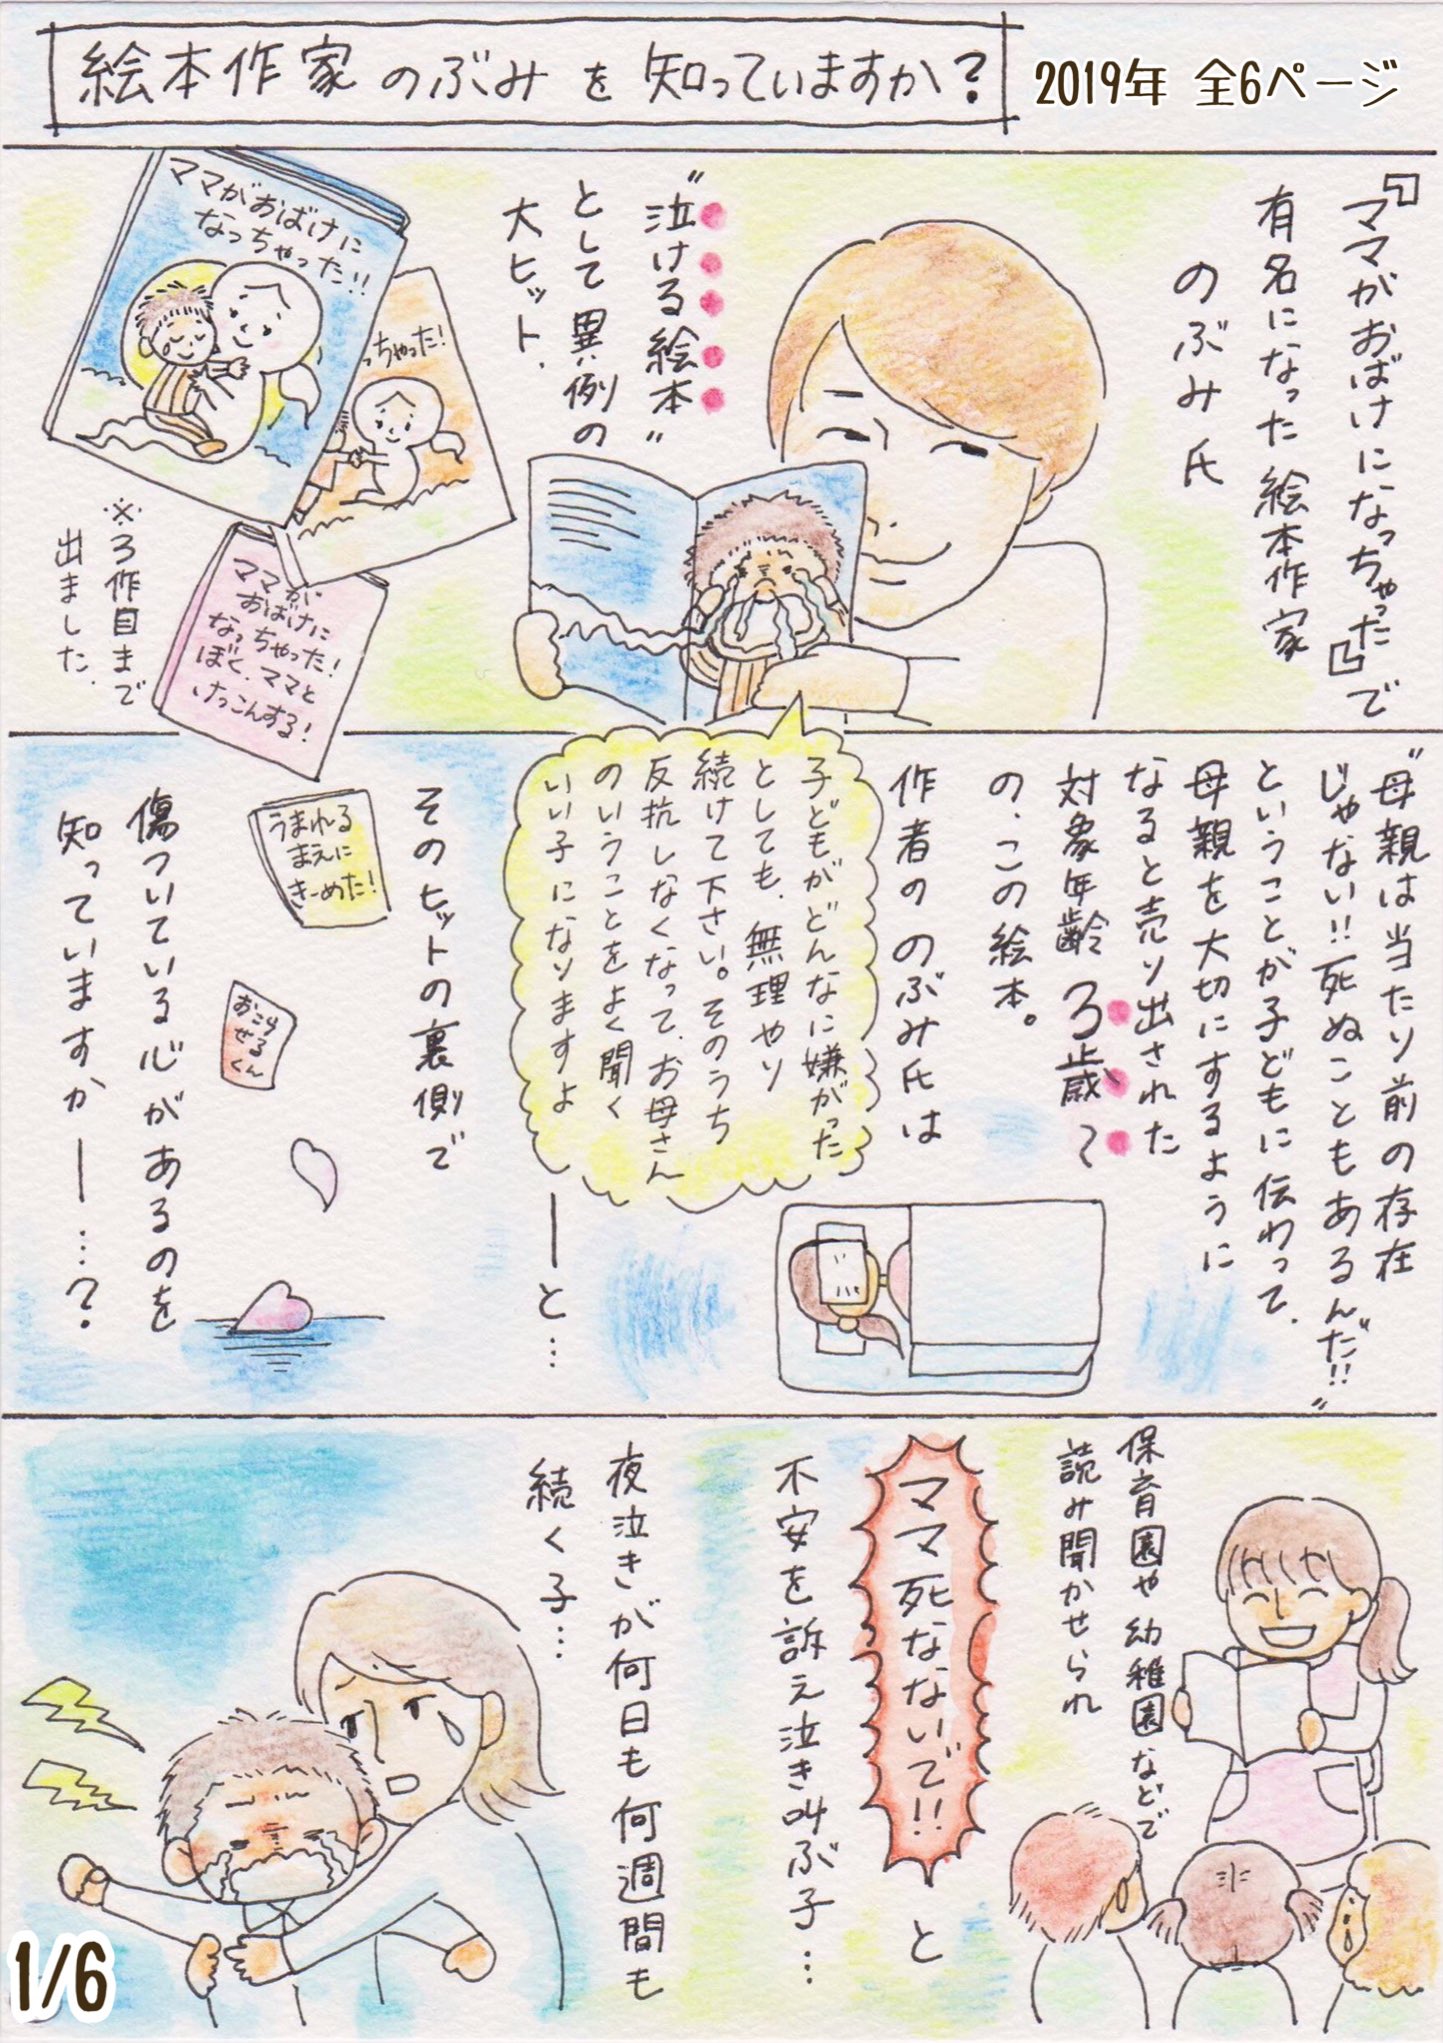 絵本作家 のぶみ を 知っていますか?
2019年 全6ページ
『ママがおばけになっちゃった』で
有名になった絵本作家
のぶみ氏
"泣ける絵本"
として異例の
大ヒット.
ママがおばけに
なっちゃった!!
っちゃった!
ママが
おばけに
なっちゃった!
ぼく、ママと
けっこんする!
※3作目まで
出ました.
"母親は当たり前の存在
じゃない!!死ぬこともあるんだ!!"
ということが子どもに伝わって、
母親を大切にするように
なると売り出された
対象年齢 3歳〜
の、この絵本。
作者の のぶみ氏は
子どもがどんなに嫌がった
としても、無理やり
続けて下さい。そのうち
反抗しなくなって、お母さん
のいうことをよく聞く
いい子になりますよ
――と…
そのヒットの裏側で
うまれる
まえに
きーめた!
おこら
せる
くん
傷ついている心があるのを
知っていますか――…?
保育園や幼稚園などで
読み聞かせられ
ママ死なないで!!
と
不安を訴え泣き叫ぶ子…
夜泣きが何日も何週間も
続く子…
1/6